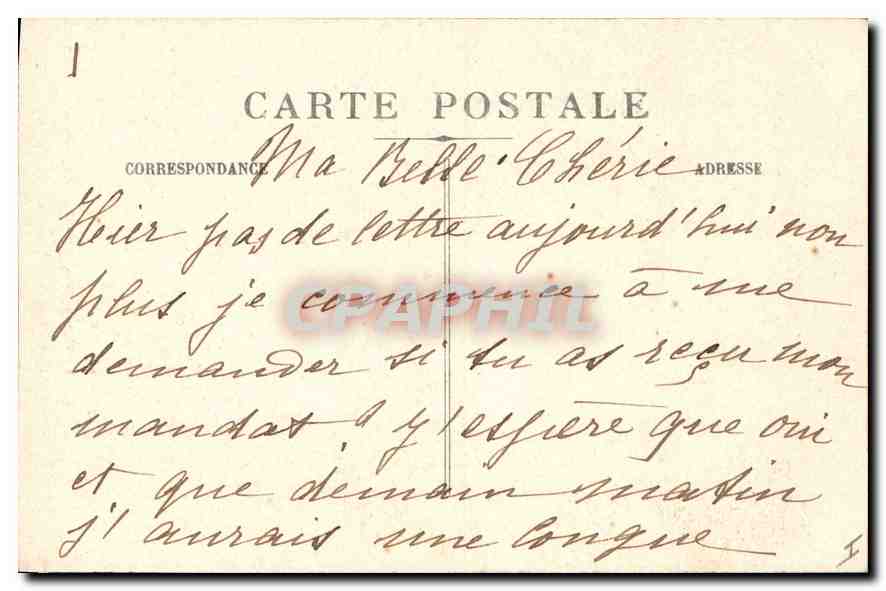 1
CARTE POSTALE
CORRESPONDANCE
ADRESSE
Ma Belle Chérie
Hier pas de lettre aujourd'hui non
plus je commence à me
demander si tu as reçu mon
mandat y'espère que oui
et que demain matin
j'aurais une longue
CPAPHIL